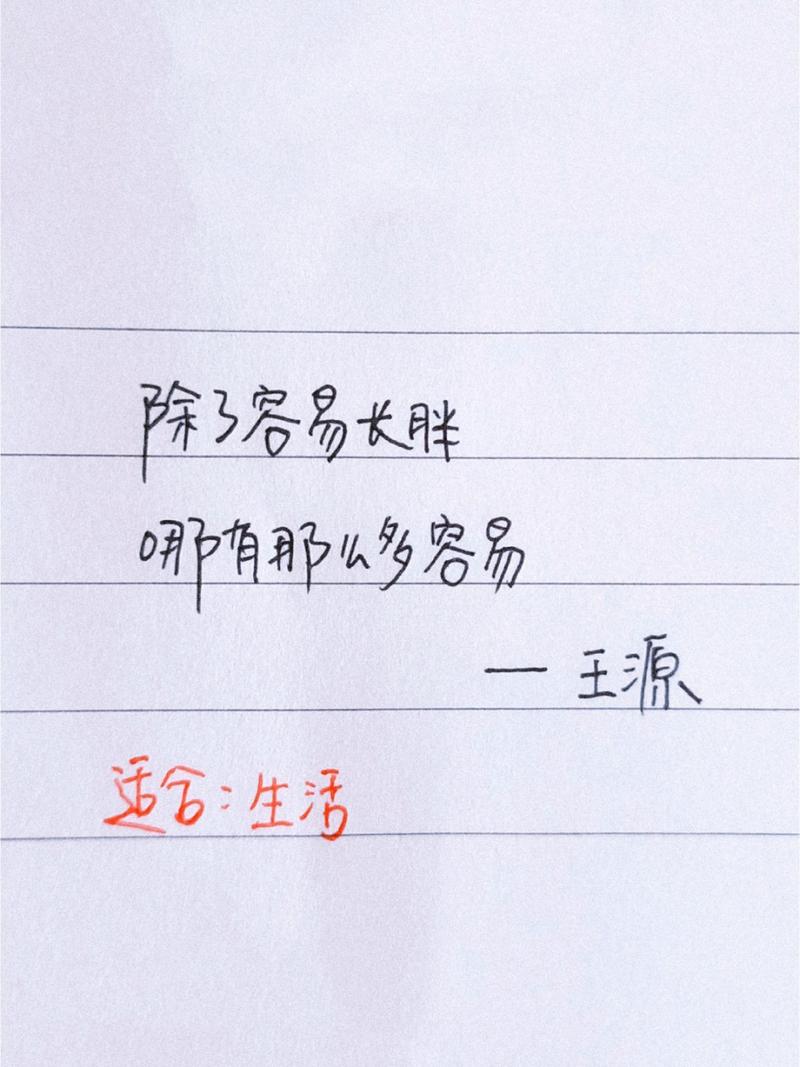 除了容易长胖
哪有那么多容易
— 王源
适合：生活